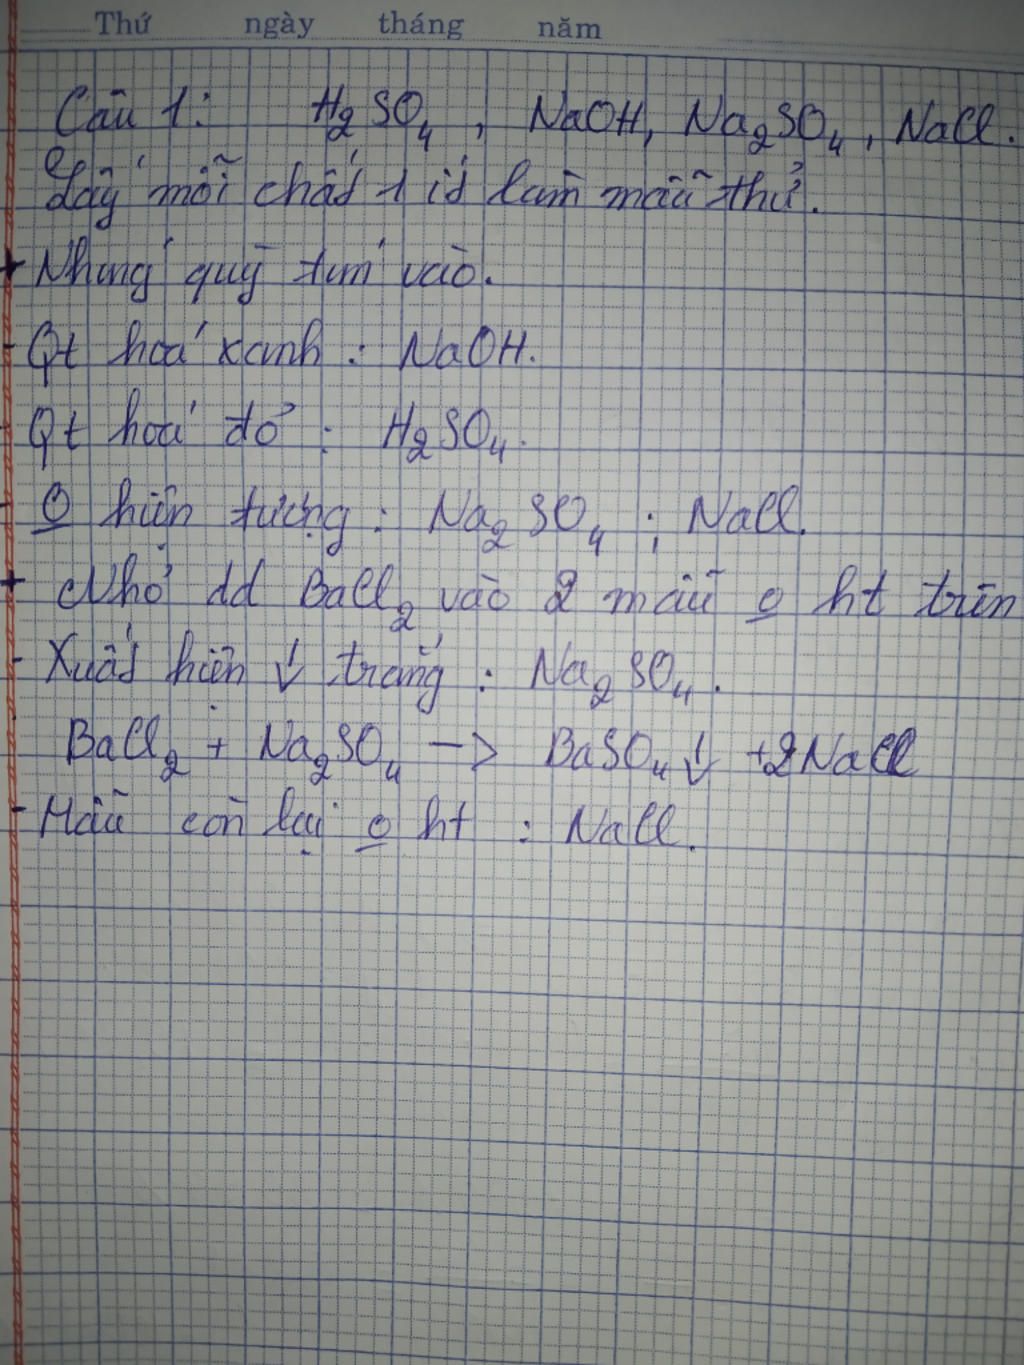 Thứ ngày tháng năm
Câu 1: H₂SO₄, NaOH, Na₂SO₄, NaCl.
Lấy mỗi chất 1 ít làm mẫu thử.
+ Nhúng quỳ tím vào.
- Qt hoá xanh: NaOH.
- Qt hoá đỏ: H₂SO₄.
- O hiện tượng: Na₂SO₄; NaCl.
+ Nhỏ dd BaCl₂ vào 2 mẫu o ht trên
- Xuất hiện ↓ trắng: Na₂SO₄.
BaCl₂ + Na₂SO₄ -> BaSO₄↓ +2NaCl
- Mẫu còn lại o ht: NaCl.